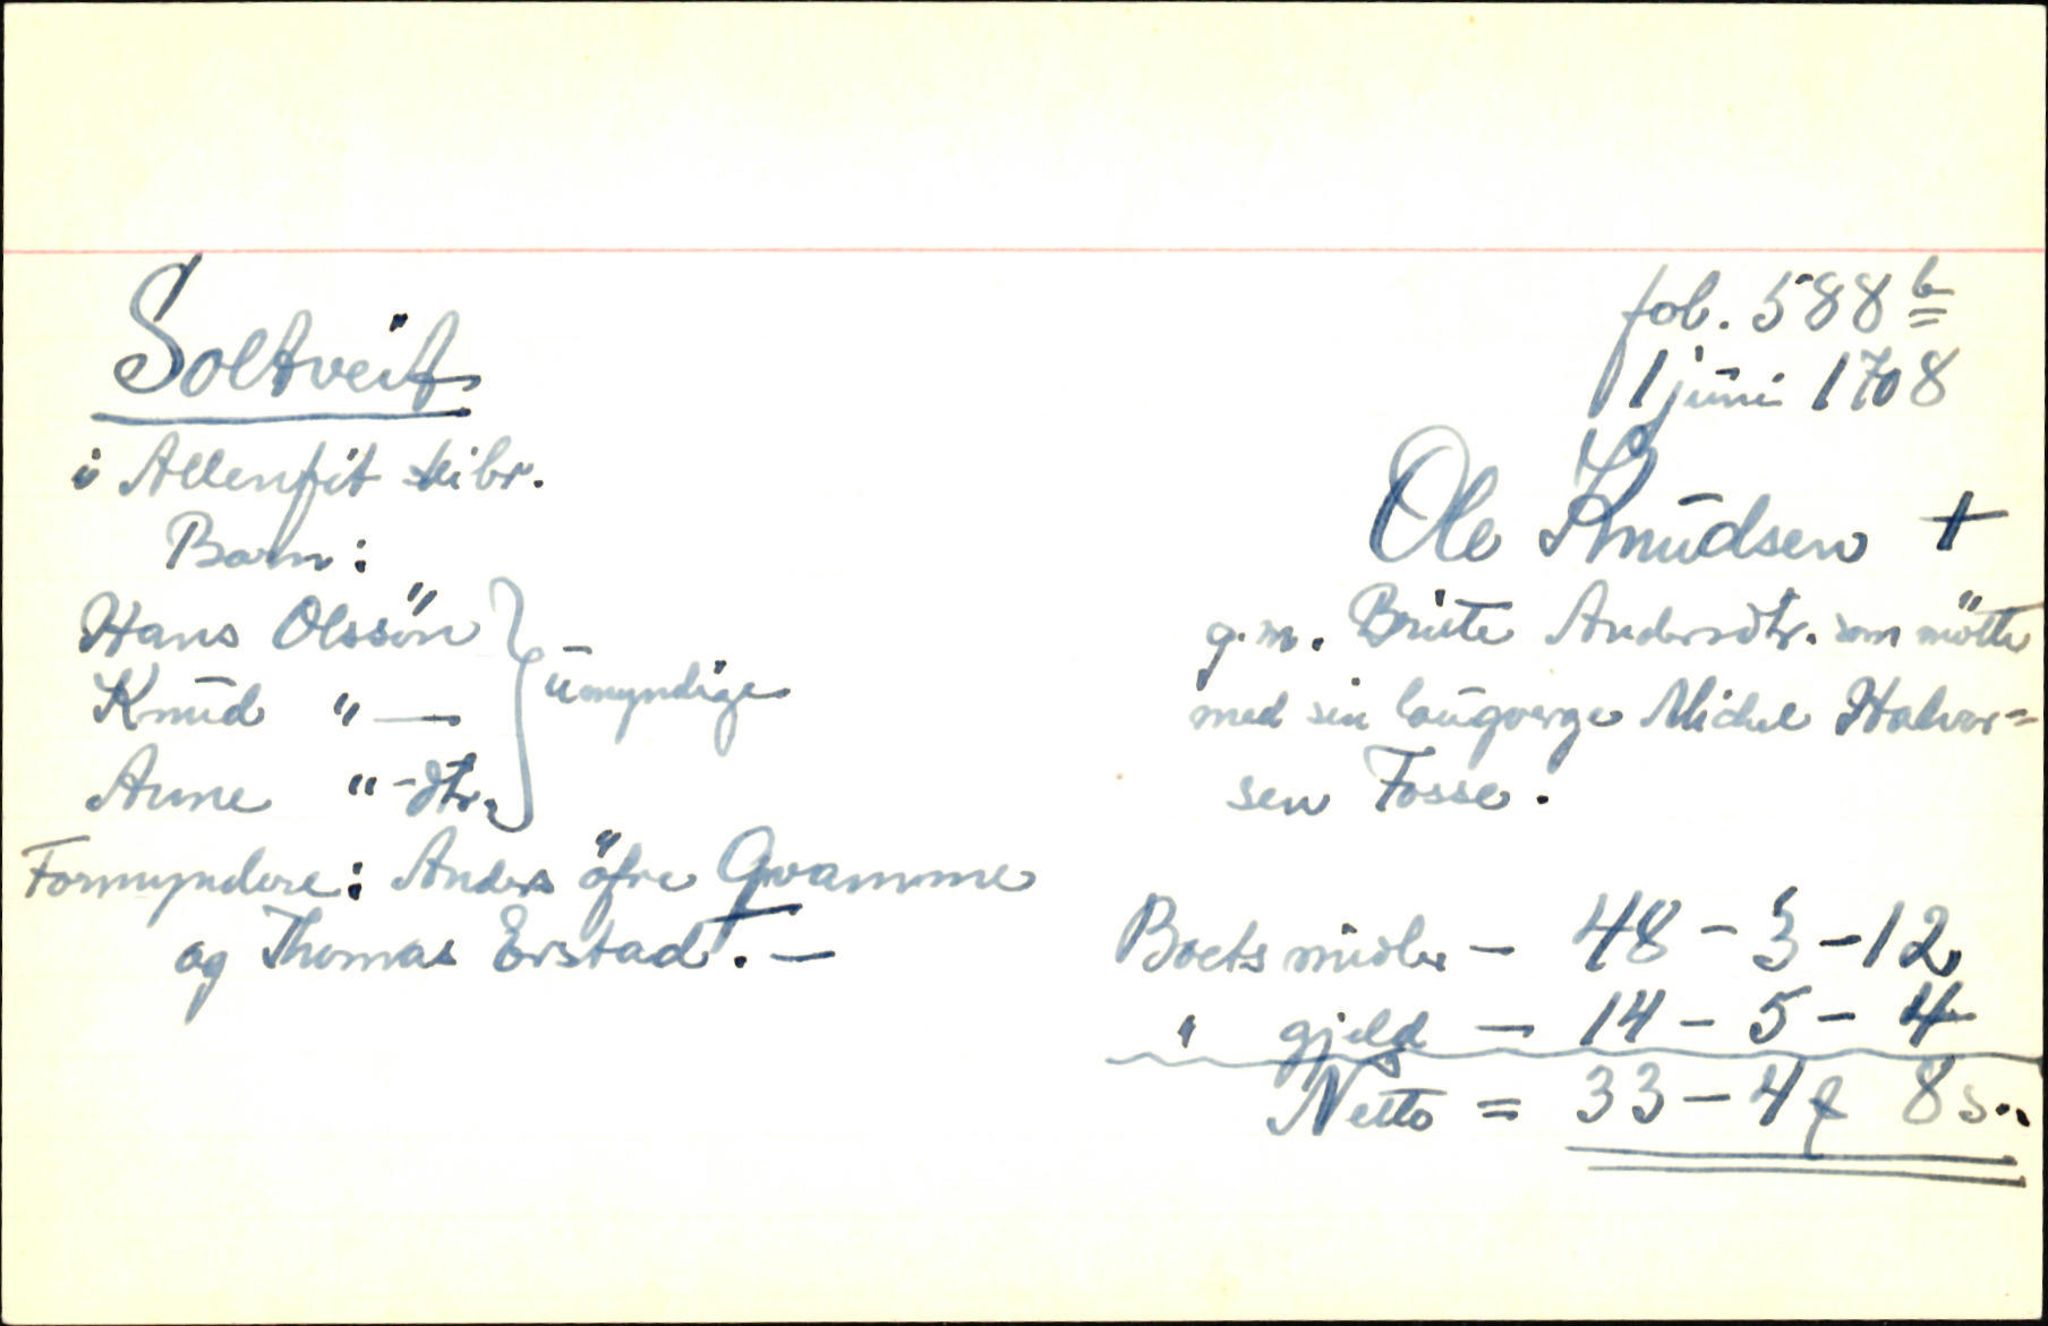 Soltveit
i Allenfit skibr.
Barn:
Hans Olssön
Knud " —
Anne " -dtr.
umyndige
Formyndere: Anders öfre Qvamme
og Thomas Erstad. —
fol. 588 b
1 juni 1708
Ole Knudsen +
g.m. Britte Andersdtr. som mötte
med sin laugverge Michel Halvor=
sen Fosse.
Boets midler – 48 – 3 – 12
" gjeld — 14 – 5 – 4
Netto = 33 – 4 f 8 s..